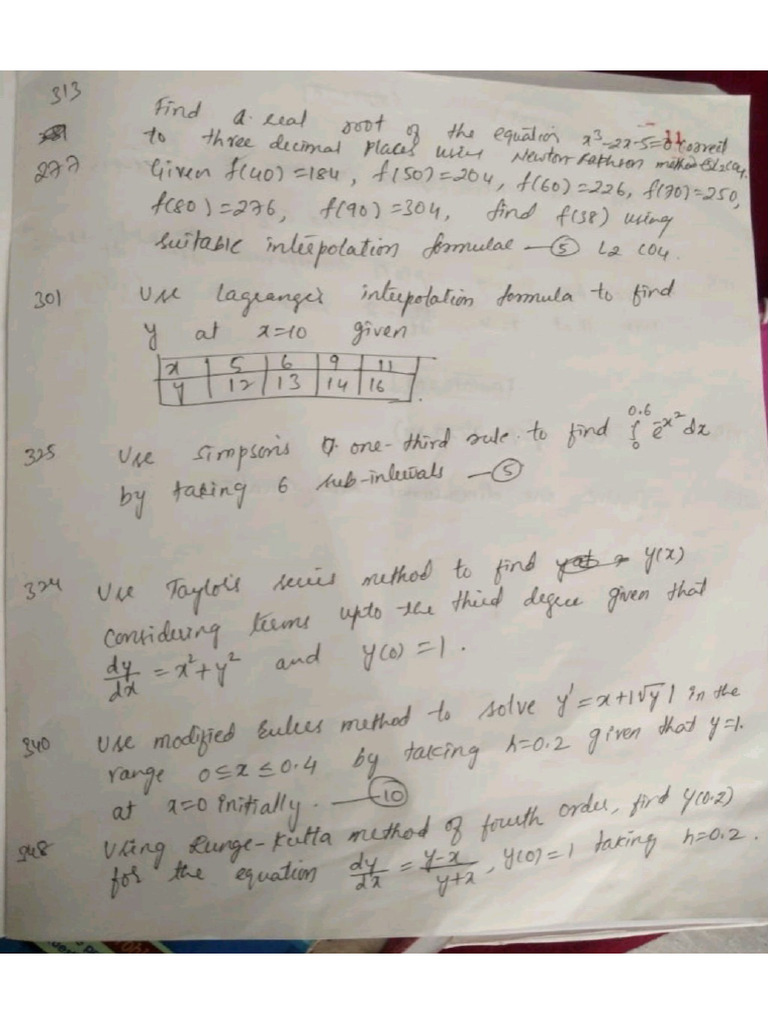 313 Find a real root of the equation x³-2x-5=0 correct
to three decimal places using Newton Raphson method
277 Given f(40)=184, f(50)=204, f(60)=226, f(70)=250,
f(80)=276, f(90)=304, find f(38) using
suitable interpolation formulae —⑤ L2 CO4.
301 Use Lagrange's interpolation formula to find
y at x=10 given
x 5 6 9 11
y 12 13 14 16
325 Use Simpson's one-third rule to find ∫₀^0.6 e^-x² dx
by taking 6 sub-intervals —⑤
324 Use Taylor's series method to find y(x)
considering terms upto the third degree given that
dy/dx = x²+y² and y(0)=1.
340 Use modified Eulers method to solve y'=x+|√y| in the
range 0≤x≤0.4 by taking h=0.2 given that y=1.
at x=0 initially. —⑩
348 Using Runge-Kutta method of fourth order, find y(0.2)
for the equation dy/dx = y-x/y+x, y(0)=1 taking h=0.2.